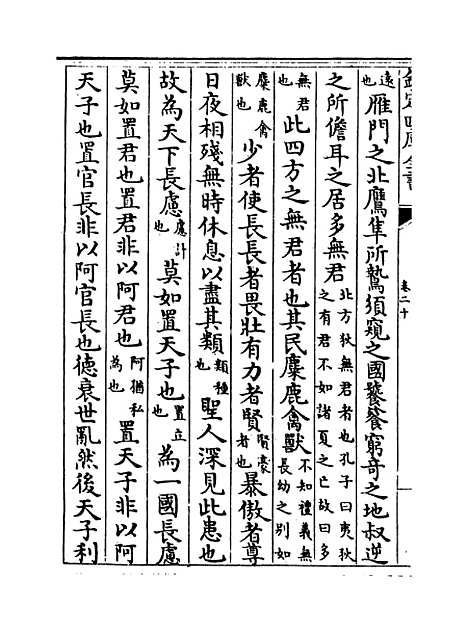 欽定四庫全書
卷二十
遠也雁門之北鷹隼所鷙須窺之國饕餮窮奇之地叔逆
之所儋耳之居多無君北方狄無君者也孔子曰夷狄之有君不如諸夏之亡故曰多
無君也此四方之無君者也其民麋鹿禽獸不知禮義無長幼之別如
麋鹿禽獸也少者使長長者畏壯有力者賢賢豪者也暴傲者尊
日夜相殘無時休息以盡其類類種也聖人深見此患也
故為天下長慮慮計也莫如置天子也置立也為一國長慮
莫如置君也置君非以阿君也阿猶私為也置天子非以阿
天子也置官長非以阿官長也德衰世亂然後天子利